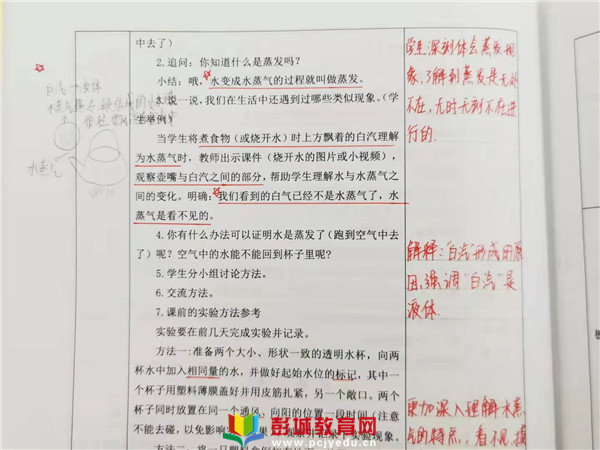 中去了）
2.追问：你知道什么是蒸发吗？
小结：哦，水变成水蒸气的过程就叫做蒸发。
3.说一说，我们在生活中还遇到过哪些类似现象。（学
生举例）
当学生将煮食物（或烧开水）时上方飘着的白汽理解
为水蒸气时，教师出示课件（烧开水的图片或小视频），
观察壶嘴与白汽之间的部分，帮助学生理解水与水蒸气之
间的变化。明确：我们看到的白气已经不是水蒸气了，水
蒸气是看不见的。
4.你有什么办法可以证明水是蒸发了（跑到空气中去
了）呢？空气中的水能不能回到杯子里呢？
5.学生分小组讨论方法。
6.交流方法。
7.课前的实验方法参考
实验要在前几天完成实验并记录。
方法一：准备两个大小、形状一致的透明水杯，向两
杯水中加入相同量的水，并做好起始水位的标记，其中一
个杯子用塑料薄膜盖好并用皮筋扎紧，另一个敞口。两个
杯子同时放置在同一个通风、向阳的位置一段时间（注意
不能去碰，以免影响实
实验现象。
方法二
白汽—液体
水蒸气
学生深刻体会蒸发现
象，了解到蒸发是无处
不在，无时无刻不在进
行的.
解释："白汽"形成的原
因，强调"白汽"是
液体.
更加深入理解水蒸
气的特点，看不见，摸
彭城教育网
www.pcjyedu.cn